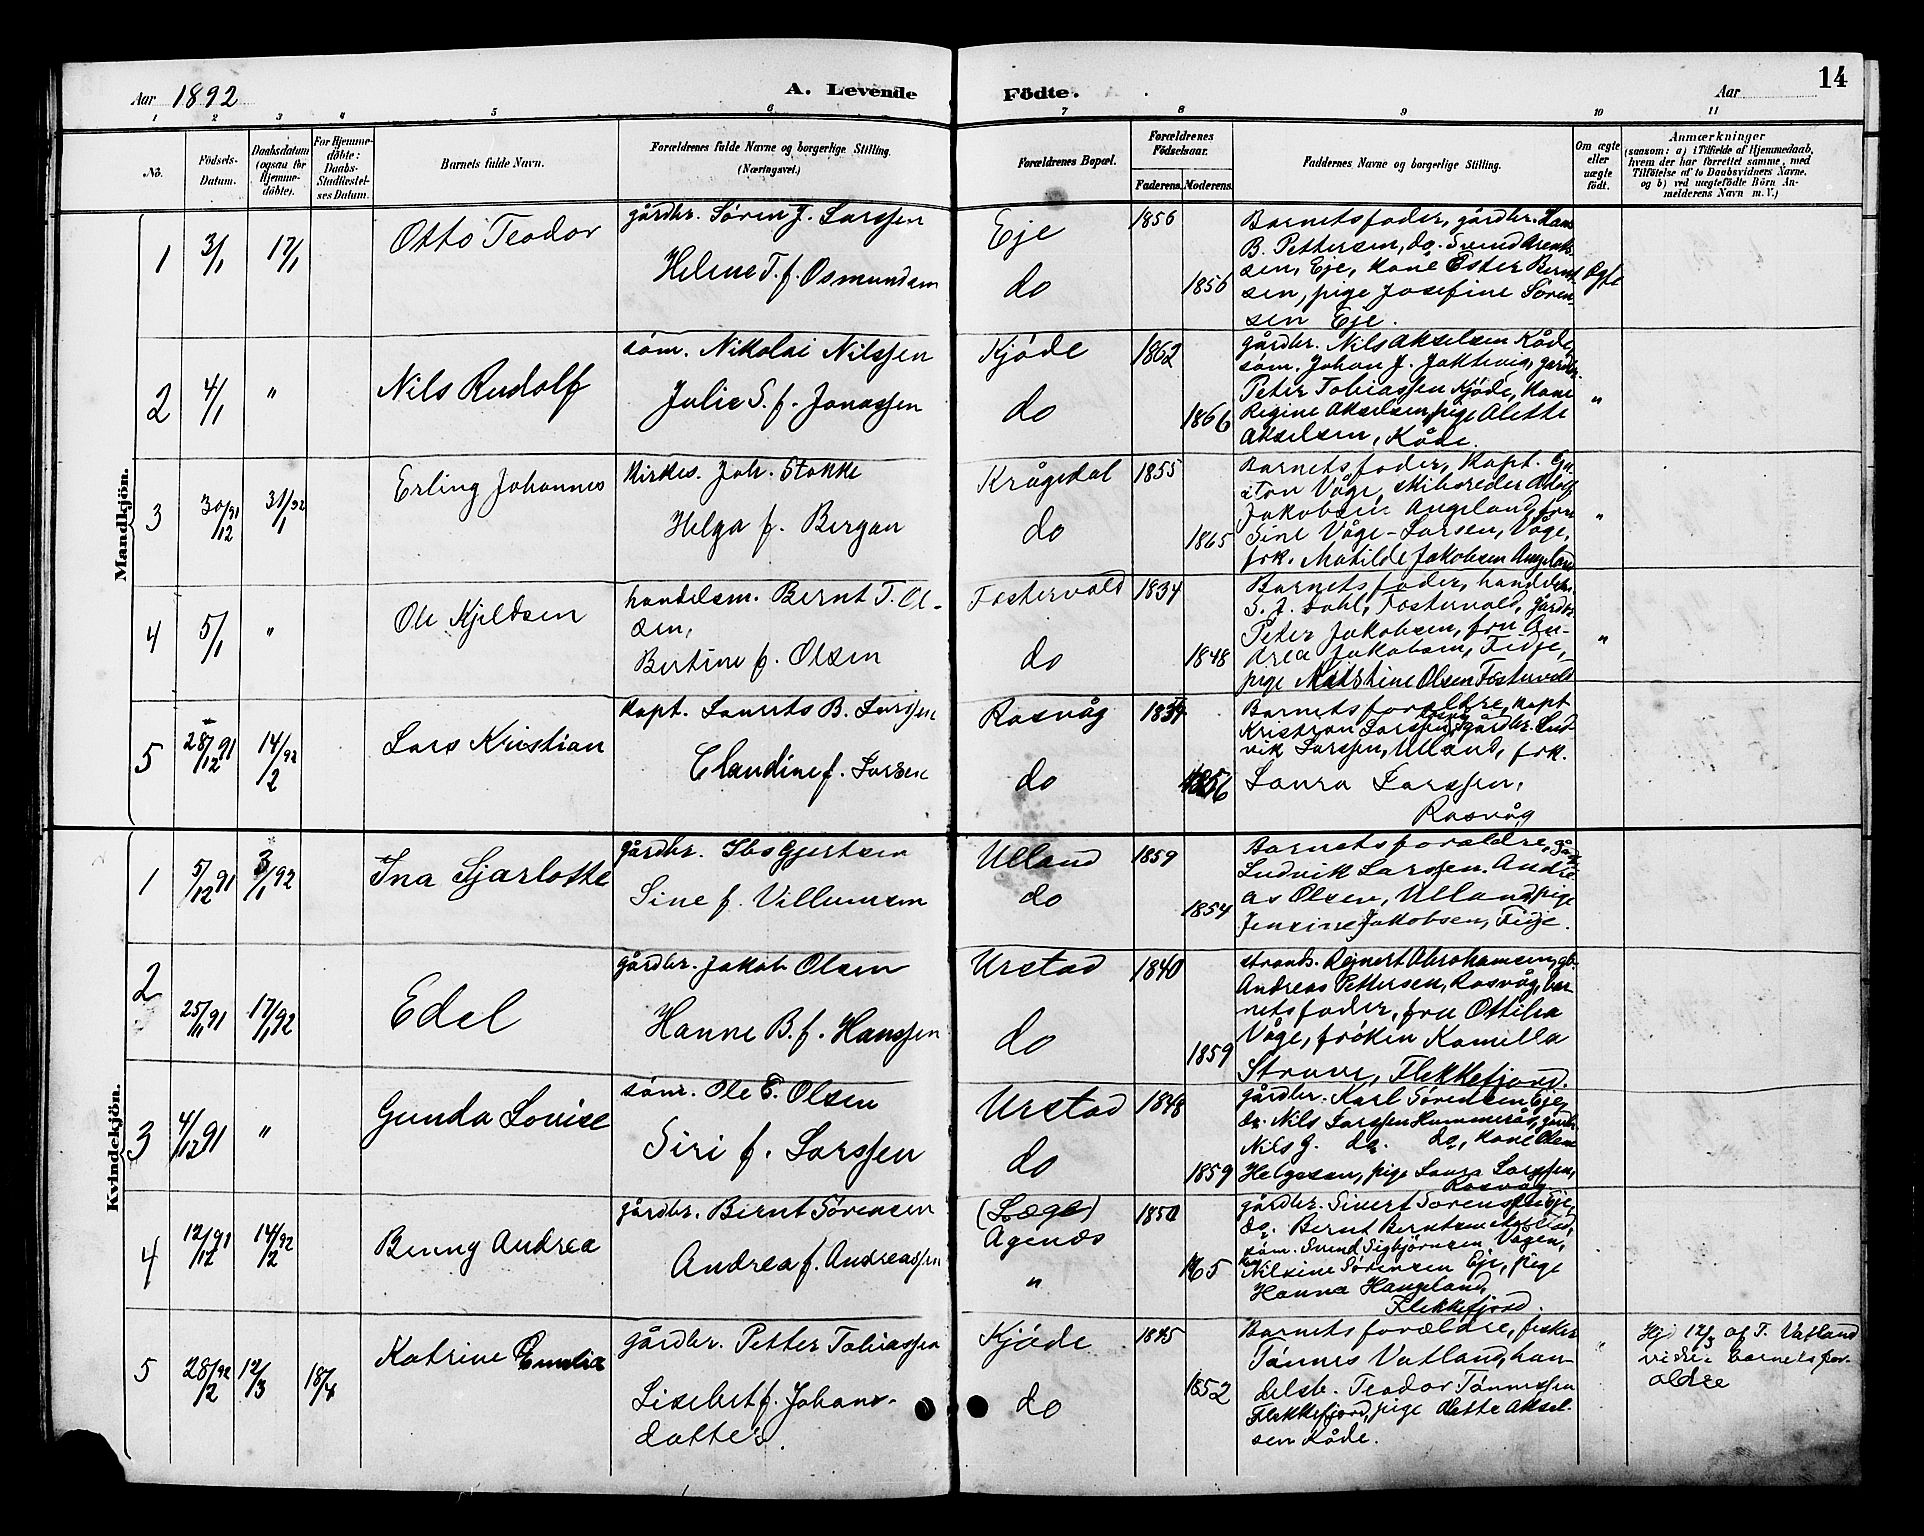 Aar 1892
A. Levende
Födte.
Aar
14
1 2 3 4 5 6 7 8 9 10 11
No.
Födsels-Datum.
Daabsdatum (ogsaa for Hjemme-döbte).
For Hjemme-döbte: Daabs-Stadfæstel-ses Datum.
Barnets fulde Navn.
Forældrenes fulde Navne og borgerlige Stilling. (Næringsvei.)
Forældrenes Bopæl.
Forældrenes Födselsaar.
Faderens. Moderens.
Faddernes Navne og borgerlige Stilling.
Om ægte eller uægte födt.
Anmærkninger
(saasom: a) i Tilfælde af Hjemmedaab,
hvem der har forrettet samme, med
Tilföielse af to Daabsvidners Navne,
og b) ved uægtefödte Börn An-
melderens Navn m. V.)
Mandkjön.
1 3/1 17/1 Otto Teodor
gårdbr. Sören J. Larssen
Helene T. f. Osmundsen
Eje 1856
do 1856
Barnets fader, gårdbr. Hans
B. Pettersen, do. Svend Arent-
sen, Eje, kone Ester Bernt-
sen, pige Josefine Sören-
sen Eje.
Ægte
2 4/1 " Nils Rudolf
söm. Nikolai Nilssen
Julie S. f. Jonassen
Kjöde 1862
do 1866
gårdbr. Nils Akselsen Kåde
söm. Johan J. Joktevig, gårdbr.
Peter Tobiassen Kjöde, kone
Regine Akselsen, pige Alette
Akselsen, Kåde.
"
3 30/12 91 31/1 92 Erling Johannes
Kirkes. Joh. Stokke
Helga f. Bergan
Krågedal 1855
do 1865
Barnets fader, Kapt. Ga-
ston Våge, skibsreder Adolf
Jakobsen Angeland, fru
Sine Våge-Larsen, Våge,
frk. Matilde Jakobsen Angeland
"
4 5/1 " Ole Kjeldsen
handelsm. Bernt T. Ol-
sen,
Bertine f. Olsen
Fostervold 1834
do 1848
Barnets fader, handelsbr.
S. J. Dahl, Fostervold, gårdbr.
Peter Jakobsen, fru An-
drea Jakobsen, Fidje,
pige Olsen Fostervold
"
5 28/12 91 14/2 92 Lars Kristian
Kapt. Laurits B. Larssen
Claudine f. Larsen
Rasvåg
do 1856
Barnets forældre, kapt
Kristian Larssen, gårdbr. Lud-
vik Larssen, Ulland, frk.
Laura Larssen,
Rasvåg
Kvindekjön.
1 5/12 91 3/1 92 Ina Sjarlotte
gårdbr. Ibs Gjertsen
Sine f. Villumsen
Ulland 1859
do 1854
Barnets forældre, gårdbr.
Ludvik Larssen, Andre-
as Olsen, Ulland, pige
Jensine Jakobsen, Fidje.
2 25/11 91 17/1 92 Edel
gårdbr. Jakob Olsen
Hanne B. f. Hanssen
Urstad 1840
do 1859
strands. Rejnert Abrahamsen, gb.
Andreas Pettersen, Rasvåg, bar-
nets fader, fru Ottilia
Våge, fröken Kamilla
Strøm, Flekkefjord.
3 4/12 91 " Gunda Louise
söm. Ole E. Olsen
Siri f. Larssen
Urstad 1848
do 1859
gårdbr. Karl Sörensen Eje,
do. Nils Larssen Hummerås, gårdbr.
Nils G. do. do, kone Olene
Helgesen, pige Laura Larssen,
Rasvåg
4 12/12 91 14/2 92 Benny Andrea
gårdbr. Bernt Sörensen
Andrea f. Andreassen
(Læge)
Agenæs 1850
" 1865
gårdbr. Sivert Sörensen Eje,
do. Bernt Berntsen
söm. Svend Sigbjörnsen Vågen,
Nilsine Sörensen Eje, pige
Hanna Haugeland,
Flekkefjord.
5 28/2 92 12/3 18/4 Katrine Emilie
gårdbr. Petter Tobiassen
Lisebet f. Johans-
datter.
Kjöde 1845
do 1852
Barnets forældre, fisker
Tönnes Vatland, han-
delsb. Teodor Tönnessen
Flekkefjord, pige Alette Aksel-
sen Kåde.
"
Hjd 12/3 af T. Vatland
vidner barnets for-
ældre